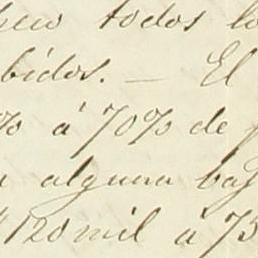 todos lo
bidos. — El
% á 70% de
alguna baj
120 mil á 75